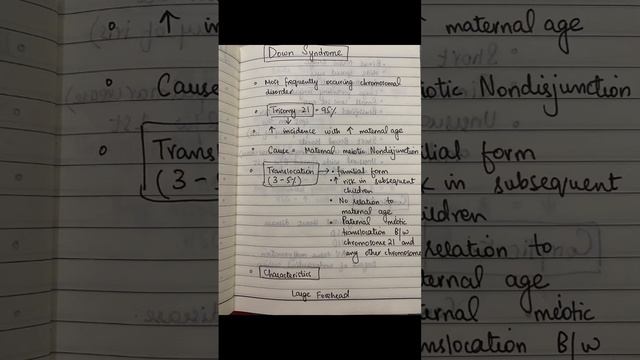 Down Syndrome
• Most frequently occuring chromosomal
disorder
• Trisomy 21 - 95%
• ↑ incidence with ↑ maternal age
• Cause = Maternal meiotic Nondisjunction
• Translocation → • familial form
(3-5%) • ↑ risk in subsequent
children
• No relation to
maternal age
• Paternal meiotic
translocation B/w
chromosome 21 and
any other chromosome
• Characteristics
Large Forehead